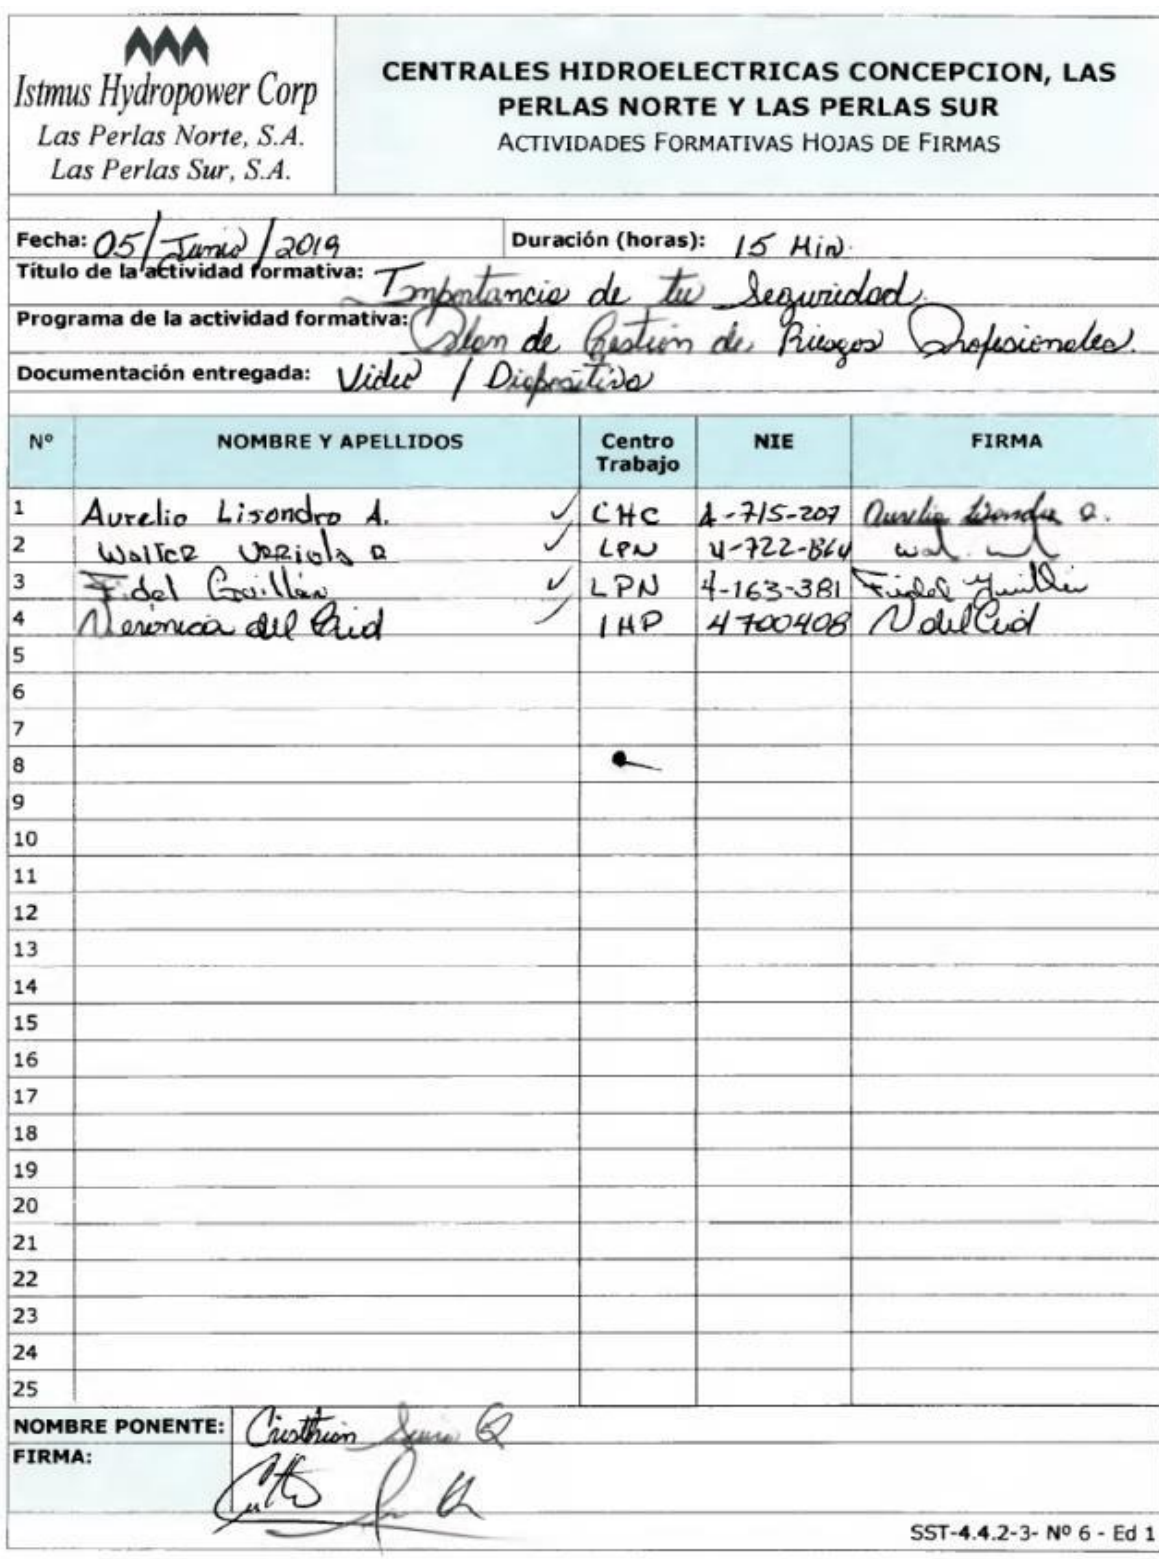 Istmus Hydropower Corp
Las Perlas Norte, S.A.
Las Perlas Sur, S.A.
CENTRALES HIDROELECTRICAS CONCEPCION, LAS
PERLAS NORTE Y LAS PERLAS SUR
ACTIVIDADES FORMATIVAS HOJAS DE FIRMAS
Fecha: 05/Junio/2019 Duración (horas): 15 Min.
Título de la actividad formativa: Importancia de tu Seguridad.
Programa de la actividad formativa: Plan de Gestion de Riesgos Profesionales.
Documentación entregada: Video / Diapositiva
Nº NOMBRE Y APELLIDOS Centro Trabajo NIE FIRMA
1 Aurelio Lisondro A. ✓ CHC 4-715-207 Aurelio Lisondro A.
2 Walter Urriola ✓ LPN 4-722-864
3 Fidel Guillén ✓ LPN 4-163-381 Fidel Guillén
4 Veronica del Cid ✓ IHP 4700408 V del Cid
5
6
7
8
9
10
11
12
13
14
15
16
17
18
19
20
21
22
23
24
25
NOMBRE PONENTE: Cristhian
FIRMA:
SST-4.4.2-3- Nº 6 - Ed 1